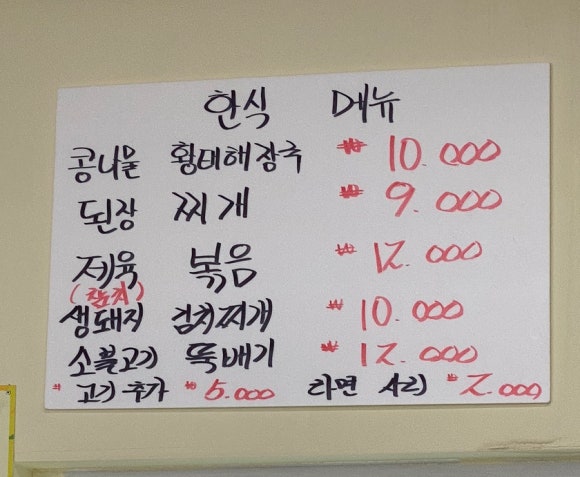 한식 메뉴
콩나물 황태해장국 ₩ 10.000
된장 찌개 ₩ 9.000
제육 볶음 ₩ 12.000
(참치)
생돼지 김치찌개 ₩ 10.000
소불고기 뚝배기 ₩ 12.000
* 고기 추가 ₩ 5.000 라면 사리 ₩ 2.000